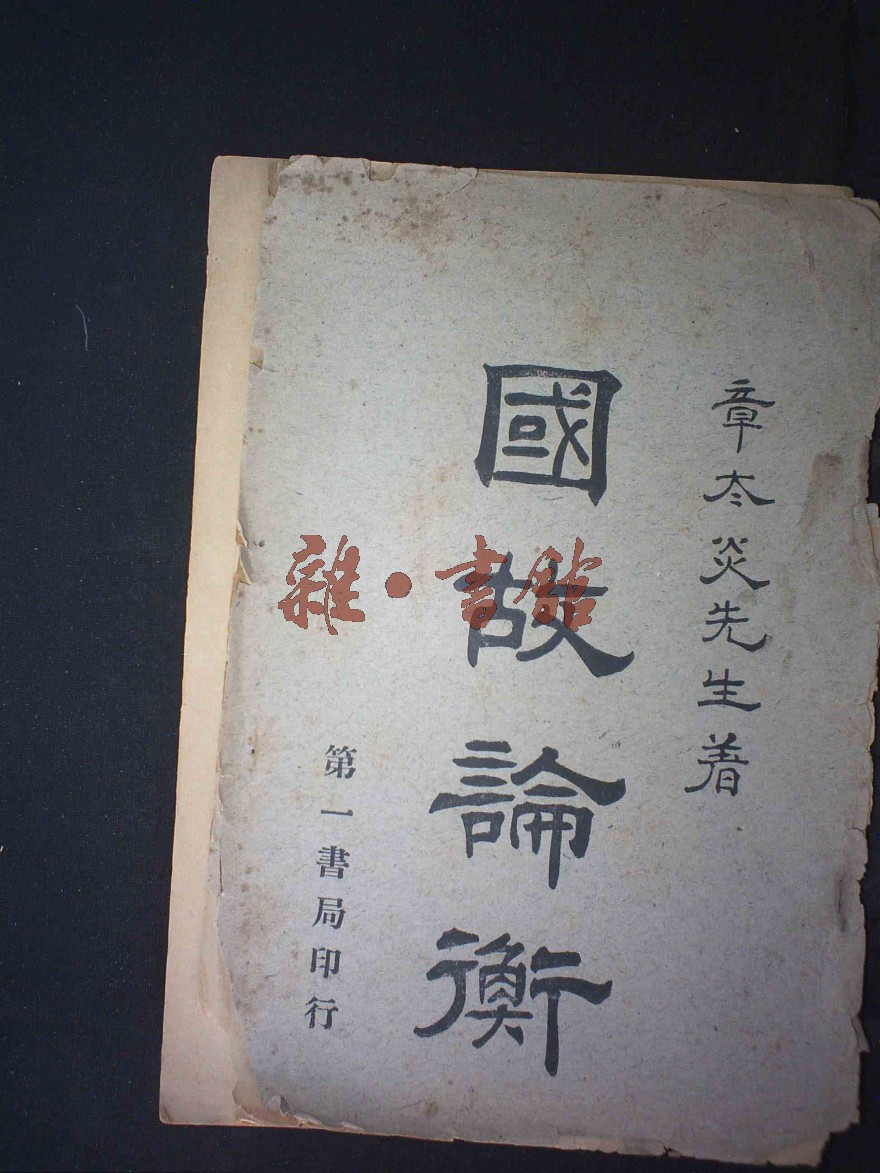 章太炎先生着
國故論衡
第一書局印行
雜·書館